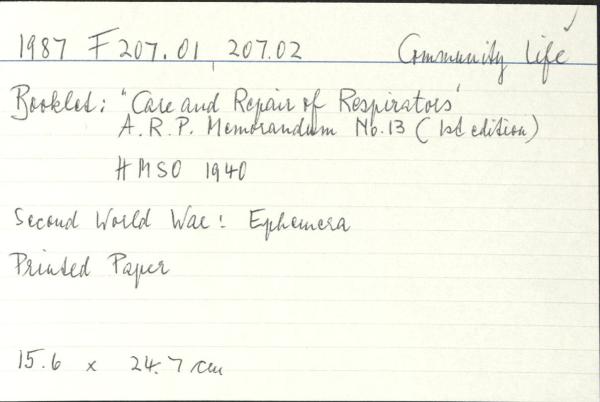 1987 F 207.01, 207.02 Community Life
Booklet: "Care and Repair of Respirators"
A.R.P. Memorandum No.13 (1st edition)
HMSO 1940
Second World War: Ephemera
Printed Paper
15.6 x 24.7 cm